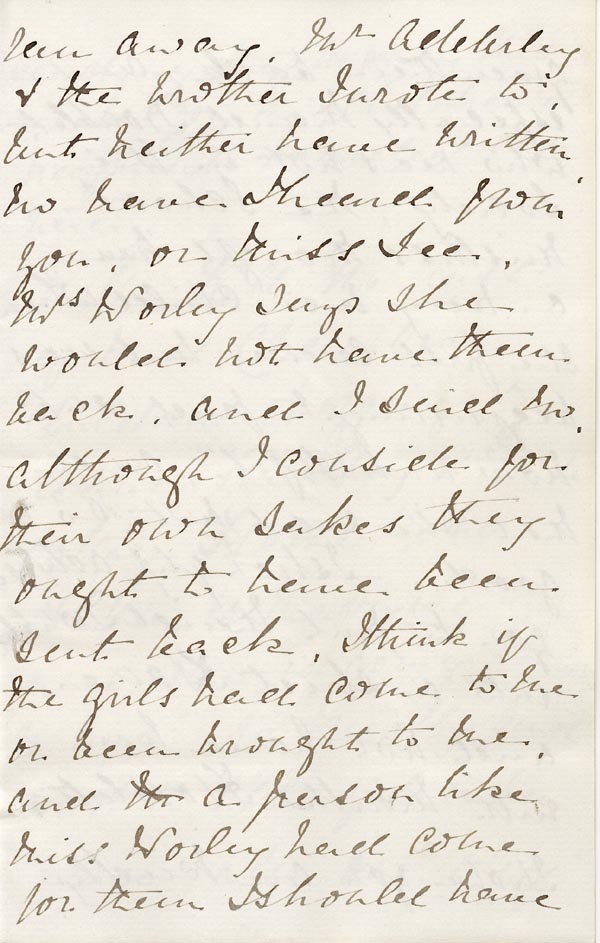 run away. Mr Adderley
& the brother I wrote to,
but neither have written,
no have I heard from
you, or Miss Lee,
Mrs Worley says she
would not have them
back. and I said no,
although I consider for
their own sakes they
ought to have been
sent back, I think if
the girls had come to me
or been brought to me,
and a person like
Miss Worley had come
for them I should have